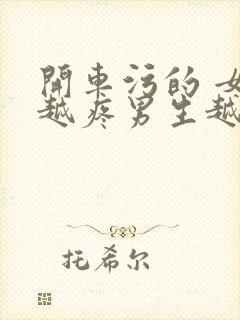 開車污的 女
越疼男生越
托希尔